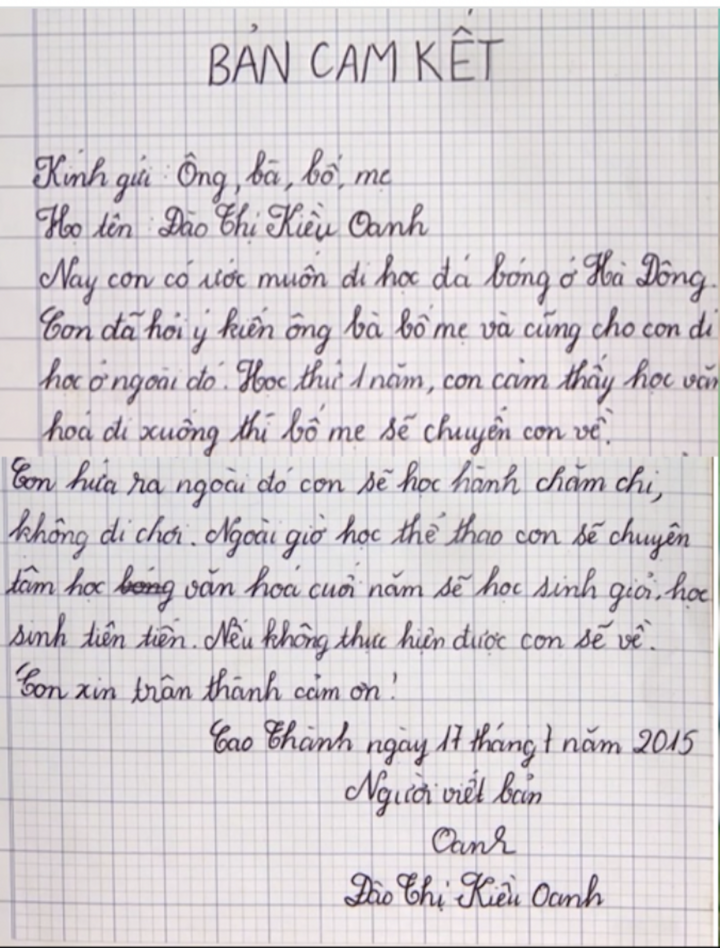 BẢN CAM KẾT
Kính gửi: Ông, bà, bố, mẹ
Họ tên: Đào Thị Kiều Oanh
Nay con có ước muốn đi học đá bóng ở Hà Đông.
Con đã hỏi ý kiến ông bà bố mẹ và cũng cho con đi
học ở ngoài đó. Học thử 1 năm, con cảm thấy học văn
hoá đi xuống thì bố mẹ sẽ chuyển con về.
Con hứa ra ngoài đó con sẽ học hành chăm chỉ,
không đi chơi. Ngoài giờ học thể thao con sẽ chuyên
tâm học bóng văn hoá cuối năm sẽ học sinh giỏi, học
sinh tiên tiến. Nếu không thực hiện được con sẽ về.
Con xin trân thành cảm ơn!
Cao Thành ngày 17 tháng 7 năm 2015
Người viết bản
Oanh
Đào Thị Kiều Oanh